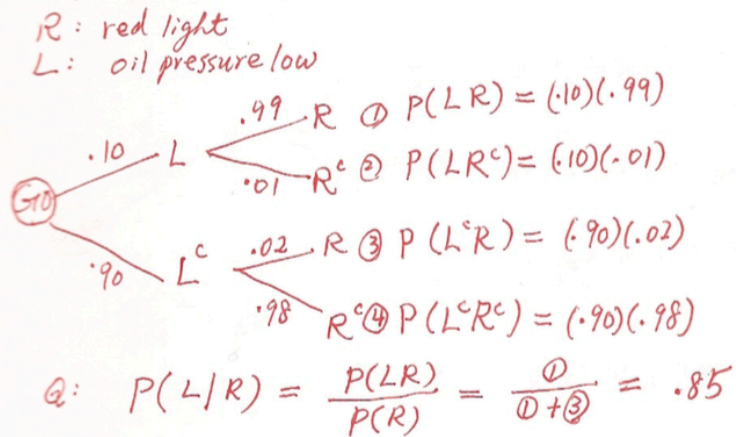 R: red light
L: oil pressure low
.99 R ① P(LR) = (.10)(.99)
.10 L
.01 Rᶜ ② P(LRᶜ) = (.10)(.01)
GO
.02 R ③ P(LᶜR) = (.90)(.02)
.90 Lᶜ
.98 Rᶜ ④ P(LᶜRᶜ) = (.90)(.98)
Q: P(L/R) = P(LR) / P(R) = ① / ①+③ = .85